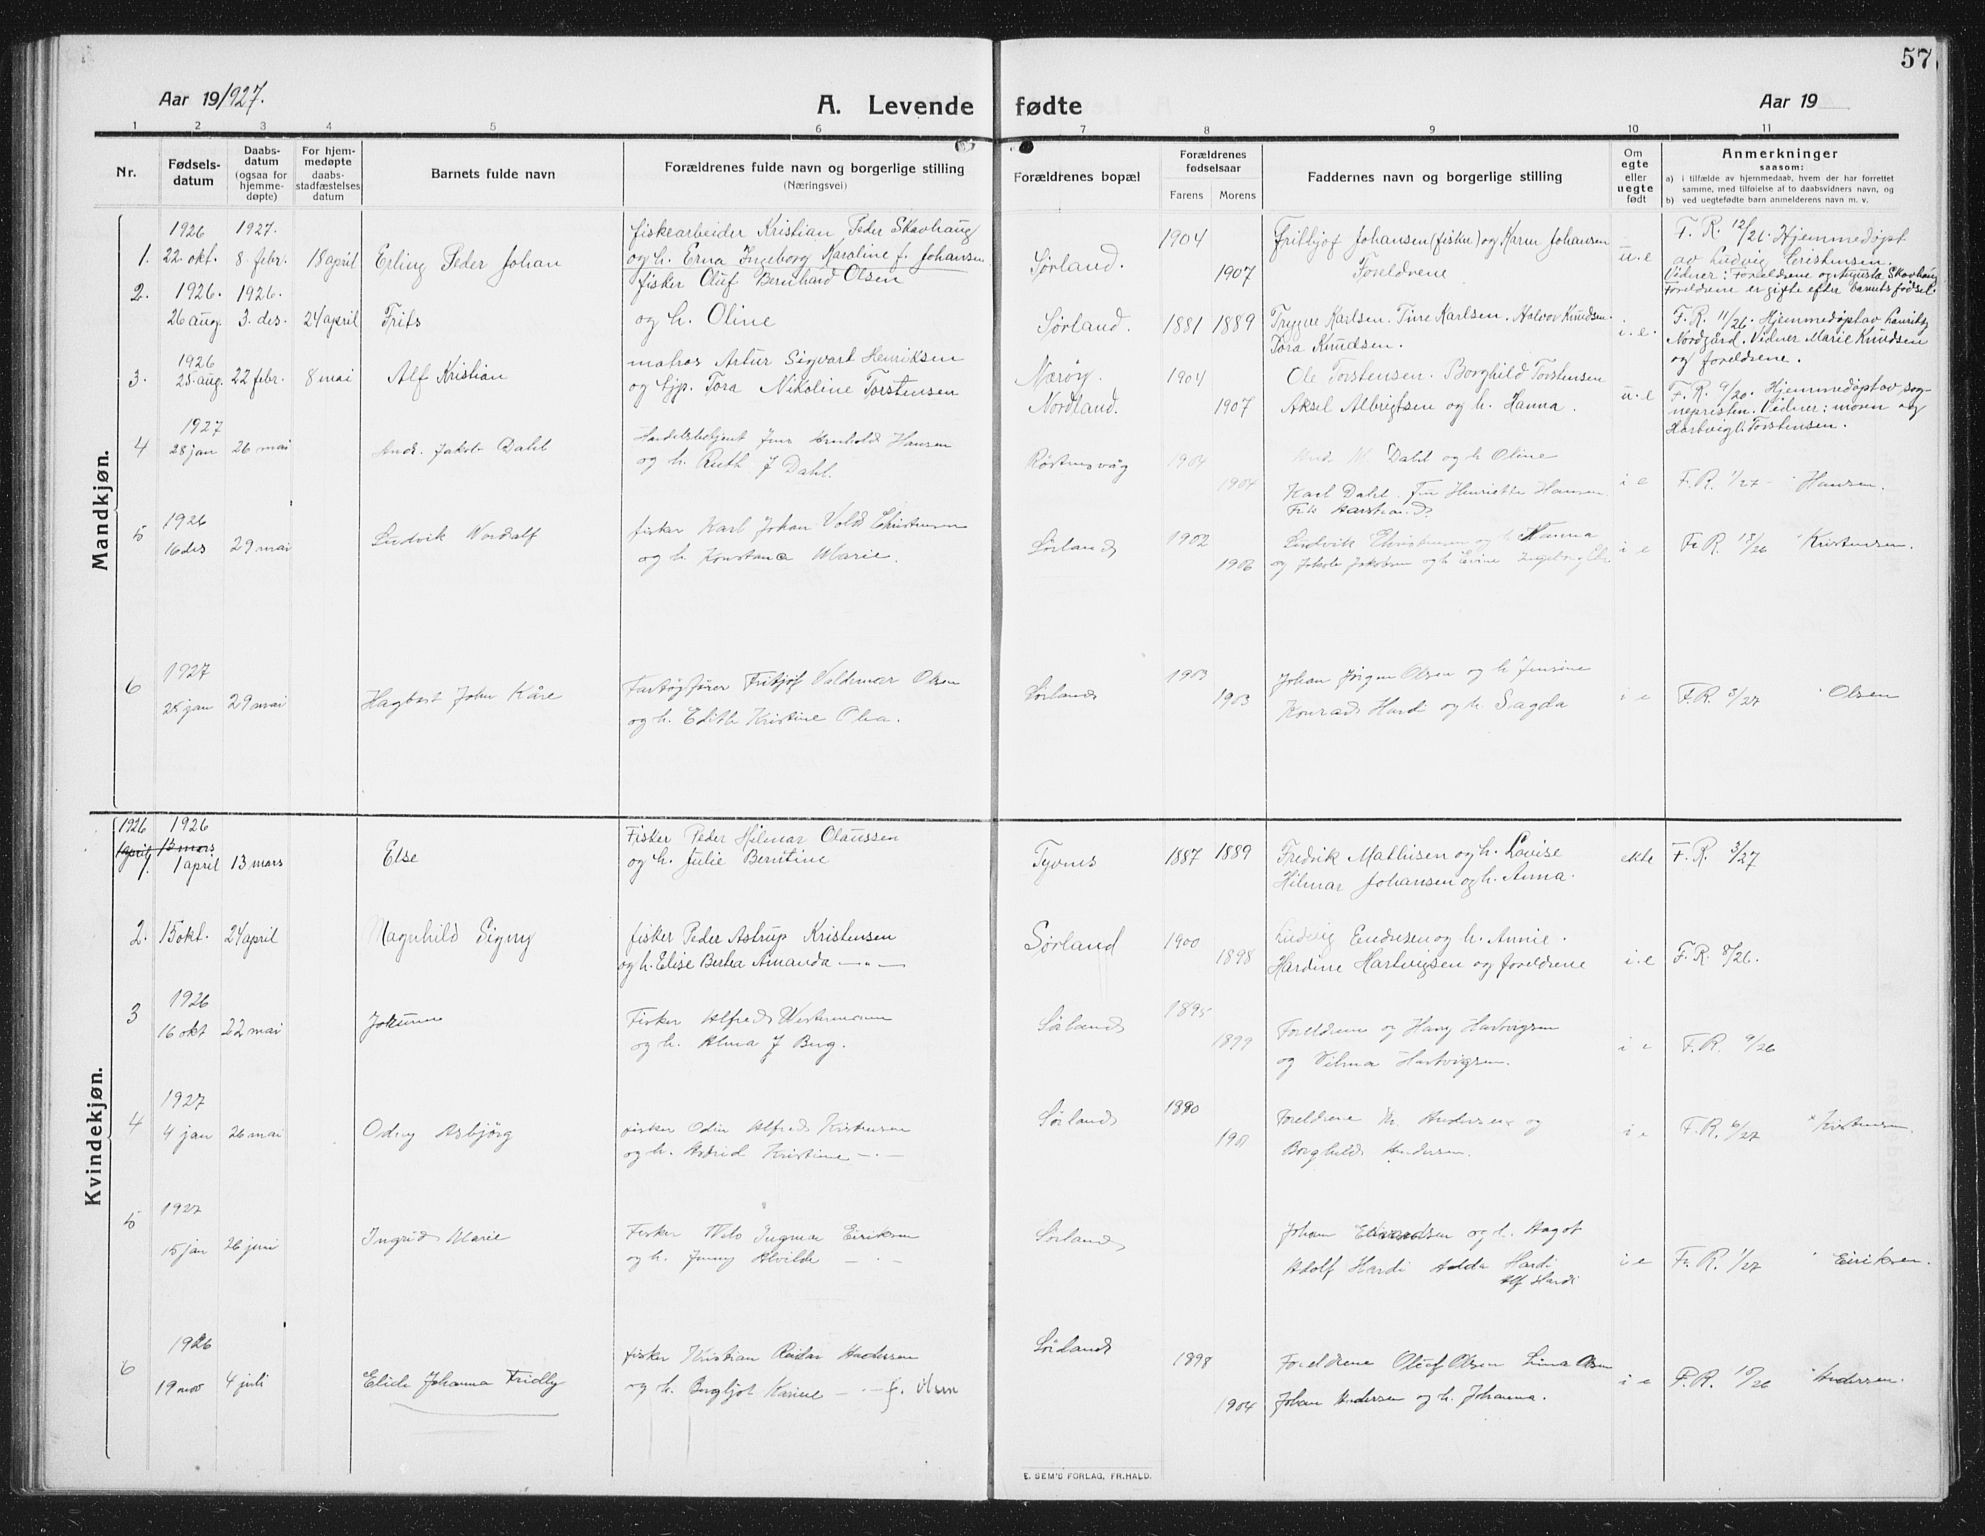 57
Aar 19/927.
A. Levende fødte
Aar 19
1 2 3 4 5 6 7 8 9 10 11
Nr.
Fødsels-
datum
Daabs-
datum
(ogsaa for
hjemme-
døpte)
For hjem-
medøpte
daabs-
stadfæstelses
datum
Barnets fulde navn
Forældrenes fulde navn og borgerlige stilling
(Næringsvei)
Forældrenes bopæl
Forældrenes
fødselsaar
Farens Morens
Faddernes navn og borgerlige stilling
Om
egte
eller
uegte
født
Anmerkninger
saasom:
a) i tilfælde av hjemmedaab, hvem der har forrettet
samme, med tilføielse af to daabsvidners navn, og
b) ved uegtefødte barn anmelderens navn m. v.
Mandkjøn.
1926 1927.
1. 22. okt. 8 febr. 18 april Erling Peder Johan
fiskearbeider Kristian Peder Skavhaug
og h. Erna Ingeborg Karoline f. Johansen
Sørland. 1904 1907
Frithjof Johansen (fisker) og Karen Johansen
Foreldrene
u.e
F. R. 12/26. Hjemmedøpt
av Ludvig Cristensen.
Vidner: Foreldrene og Augusta Skavhaug
Foreldrene er gifte efter barnets fødsel.
1926. 1926.
2. 26 aug. 3. des. 24 april Frits
fisker Oluf Bernhard Olsen
og h. Oline
Sørland. 1881 1889
Trygve Karlsen. Tine Karlsen. Halvor Knudsen.
Tora Knudsen.
i.e.
F. R. 11/26. Hjemmedøpt av Lauritz
Nordgård. Vidner Marie Knudsen
og foreldrene.
1926
3. 25. aug. 22 febr. 8 mai Alf Kristian
matros Artur Sigvart Henriksen
og Tora Nikoline Torstensen
Nærøy. Nordland. 1904 1907
Ole Torstensen. Borghild Torstensen
Aksel Albrigtsen og h. Hanna.
u.e
F. R. 9/20. Hjemmedøpt av sog-
nepresten. Vidner: moren og
Hartvig Torstensen.
1927
4 28 jan 26 mai Jakob Dahl
Hansen
og h. Ruth J Dahl.
Røstnesvåg 1904 1904
Dahl og h Oline
Karl Dahl. Henriette Hansen
i e F. R. 1/27 Hansen.
1926
5 16 des 29 mai Ludvik Nordalf
fisker Karl Johan Vold Christensen
og h. Konstance Marie.
Sørland 1902 1906
Ludvik Christensen og h Hanna
og Jakob Jakobsen og h Ingeborg
i e F. R. /26 Kristensen.
1927
6 25 jan 29 mai Hagbart John Kåre
Fartøyfører Fritjof Valdemar Olsen
og h. Edith Kristine Olea.
Sørland 1903 1903
Johan Jørgen Olsen og h Jensine
Konrad Hardi og h Sagda
i e F. R. /27 Olsen
Kvindekjøn.
1926 1926
1 april 13 mars
1. 1 april 13 mars Else
Fisker Peder Hilmar Olaussen
og h. Julie Berntine
Tyvnes 1887 1889
Fredrik Mathisen og h. Lovise
Hilmar Johansen og h. Anna.
ekte F. R. 3/27
2. 15 okt. 24 april Magnhild Signy
fisker Peder Astrup Kristensen
og h. Elise Bertea Amanda — „ —
Sørland 1900 1898
Ludvig Endresen og h. Annie.
Hardine Hartvigsen og foreldrene
i.e F. R. 8/26.
1926
3 16 okt 22 mai Johanne
Fisker Alfred Westermann
og h. Alma J Berg.
Sørland 1895 1899
Foreldrene og Harry Hartvigsen
og Vilma Hartvigsen.
i e F. R. 9/26
1927
4 4 jan 26 mai Odny Asbjörg
fisker Odin Alfred Kristensen
og h. Astrid Kristine — „ —
Sørland 1890 190
Foreldrene Andersen og
Borghild Andersen.
i e F. R. 6/27 Kristensen.
1927
5 15 jan 26 juni Ingrid Marie
Fisker Nils Ingmar Eiriksen
og h. Jenny Alvilde — „ —
Sørland
Johan og h. Aagot
Adolf Hardi Adda Hardi
Alf Hardi
i e F. R. 1/27 Eiriksen.
1926
6 19 nov 4 juli Elide Johanna Fridly
fisker Kristian Reidar Andersen
og h. Bergljot Karine — „ — f. Olsen
Sørland 1898 1904
Foreldrene Oluf Olsen Lina Olsen
Johan Andersen og h. Johanna.
i e F. R. /26 Andersen.
E. SEM'S FORLAG, FR.HALD.